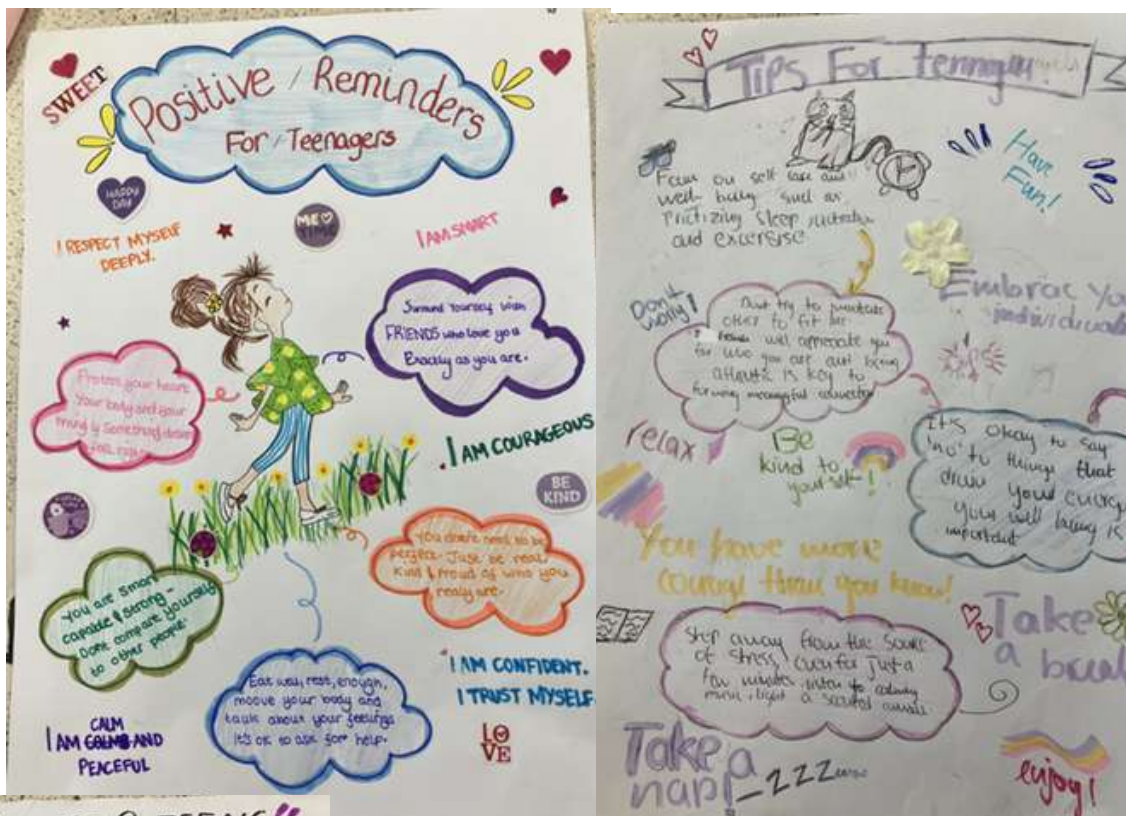 SWEET
Positive / Reminders
For / Teenagers
HAPPY
DAY
ME
TIME
I RESPECT MYSELF
DEEPLY.
I AM SMART
Surround Yourself with
FRIENDS who love you
Exactly as you are.
Protect your heart
Your body and your
mind if something
I AM COURAGEOUS
BE
KIND
You don't need to be
perfect. Just be real
Kind & Proud of who you
realy are.
You are smart
capable & strong -
Dont compare yourself
to other people.
Eat well, rest, enough,
moove your body and
taulk about your feelings
It's ok to ask for help.
I AM CONFIDENT.
I TRUST MYSELF
CALM
I AM AND
PEACEFUL
LOVE
Tips For
Have
Fun!
Focus on self care and
well- being such as
sleep
and excersise
Don't
worry!
Dont try to
to fit in.
will appreciate you
for who you are and being
is key to
forming meaningful
Embrace
relax
Be
kind to
yourself!
It's okay to say
'no' to things that
drain your energy
your well being is
important
You have more
than you know!
Step away from the
of stress, even for just a
few minutes. listen to calming
music, light a scented
Take
a
Take a
nap! zzz
enjoy!
TEENS"